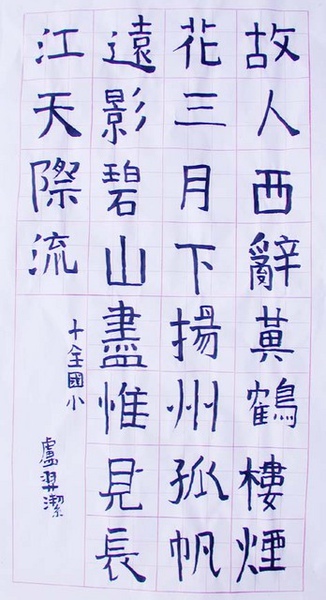 故人西辭黃鶴樓煙
花三月下揚州孤帆
遠影碧山盡惟見長
江天際流
十全國小
盧羿潔